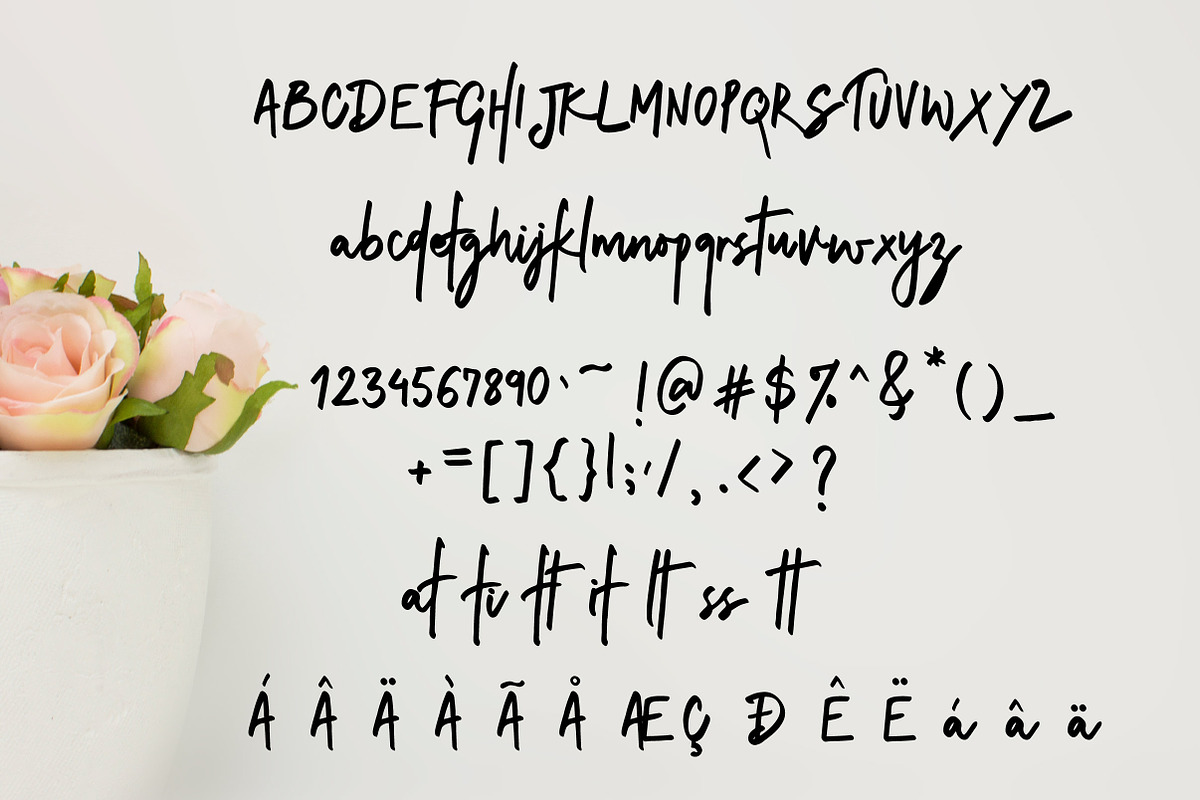 ABCDEFGHIJKLMNOPQRSTUVWXYZ
abcdefghijklmnopqrstuvwxyz
1234567890`~ !@#$%^&*()_
+=[]{}|;'/,.<>?
at fi ft it lt ss tt
Á Â Ä À Ã Å Æ Ç Ð Ê Ë á â ä